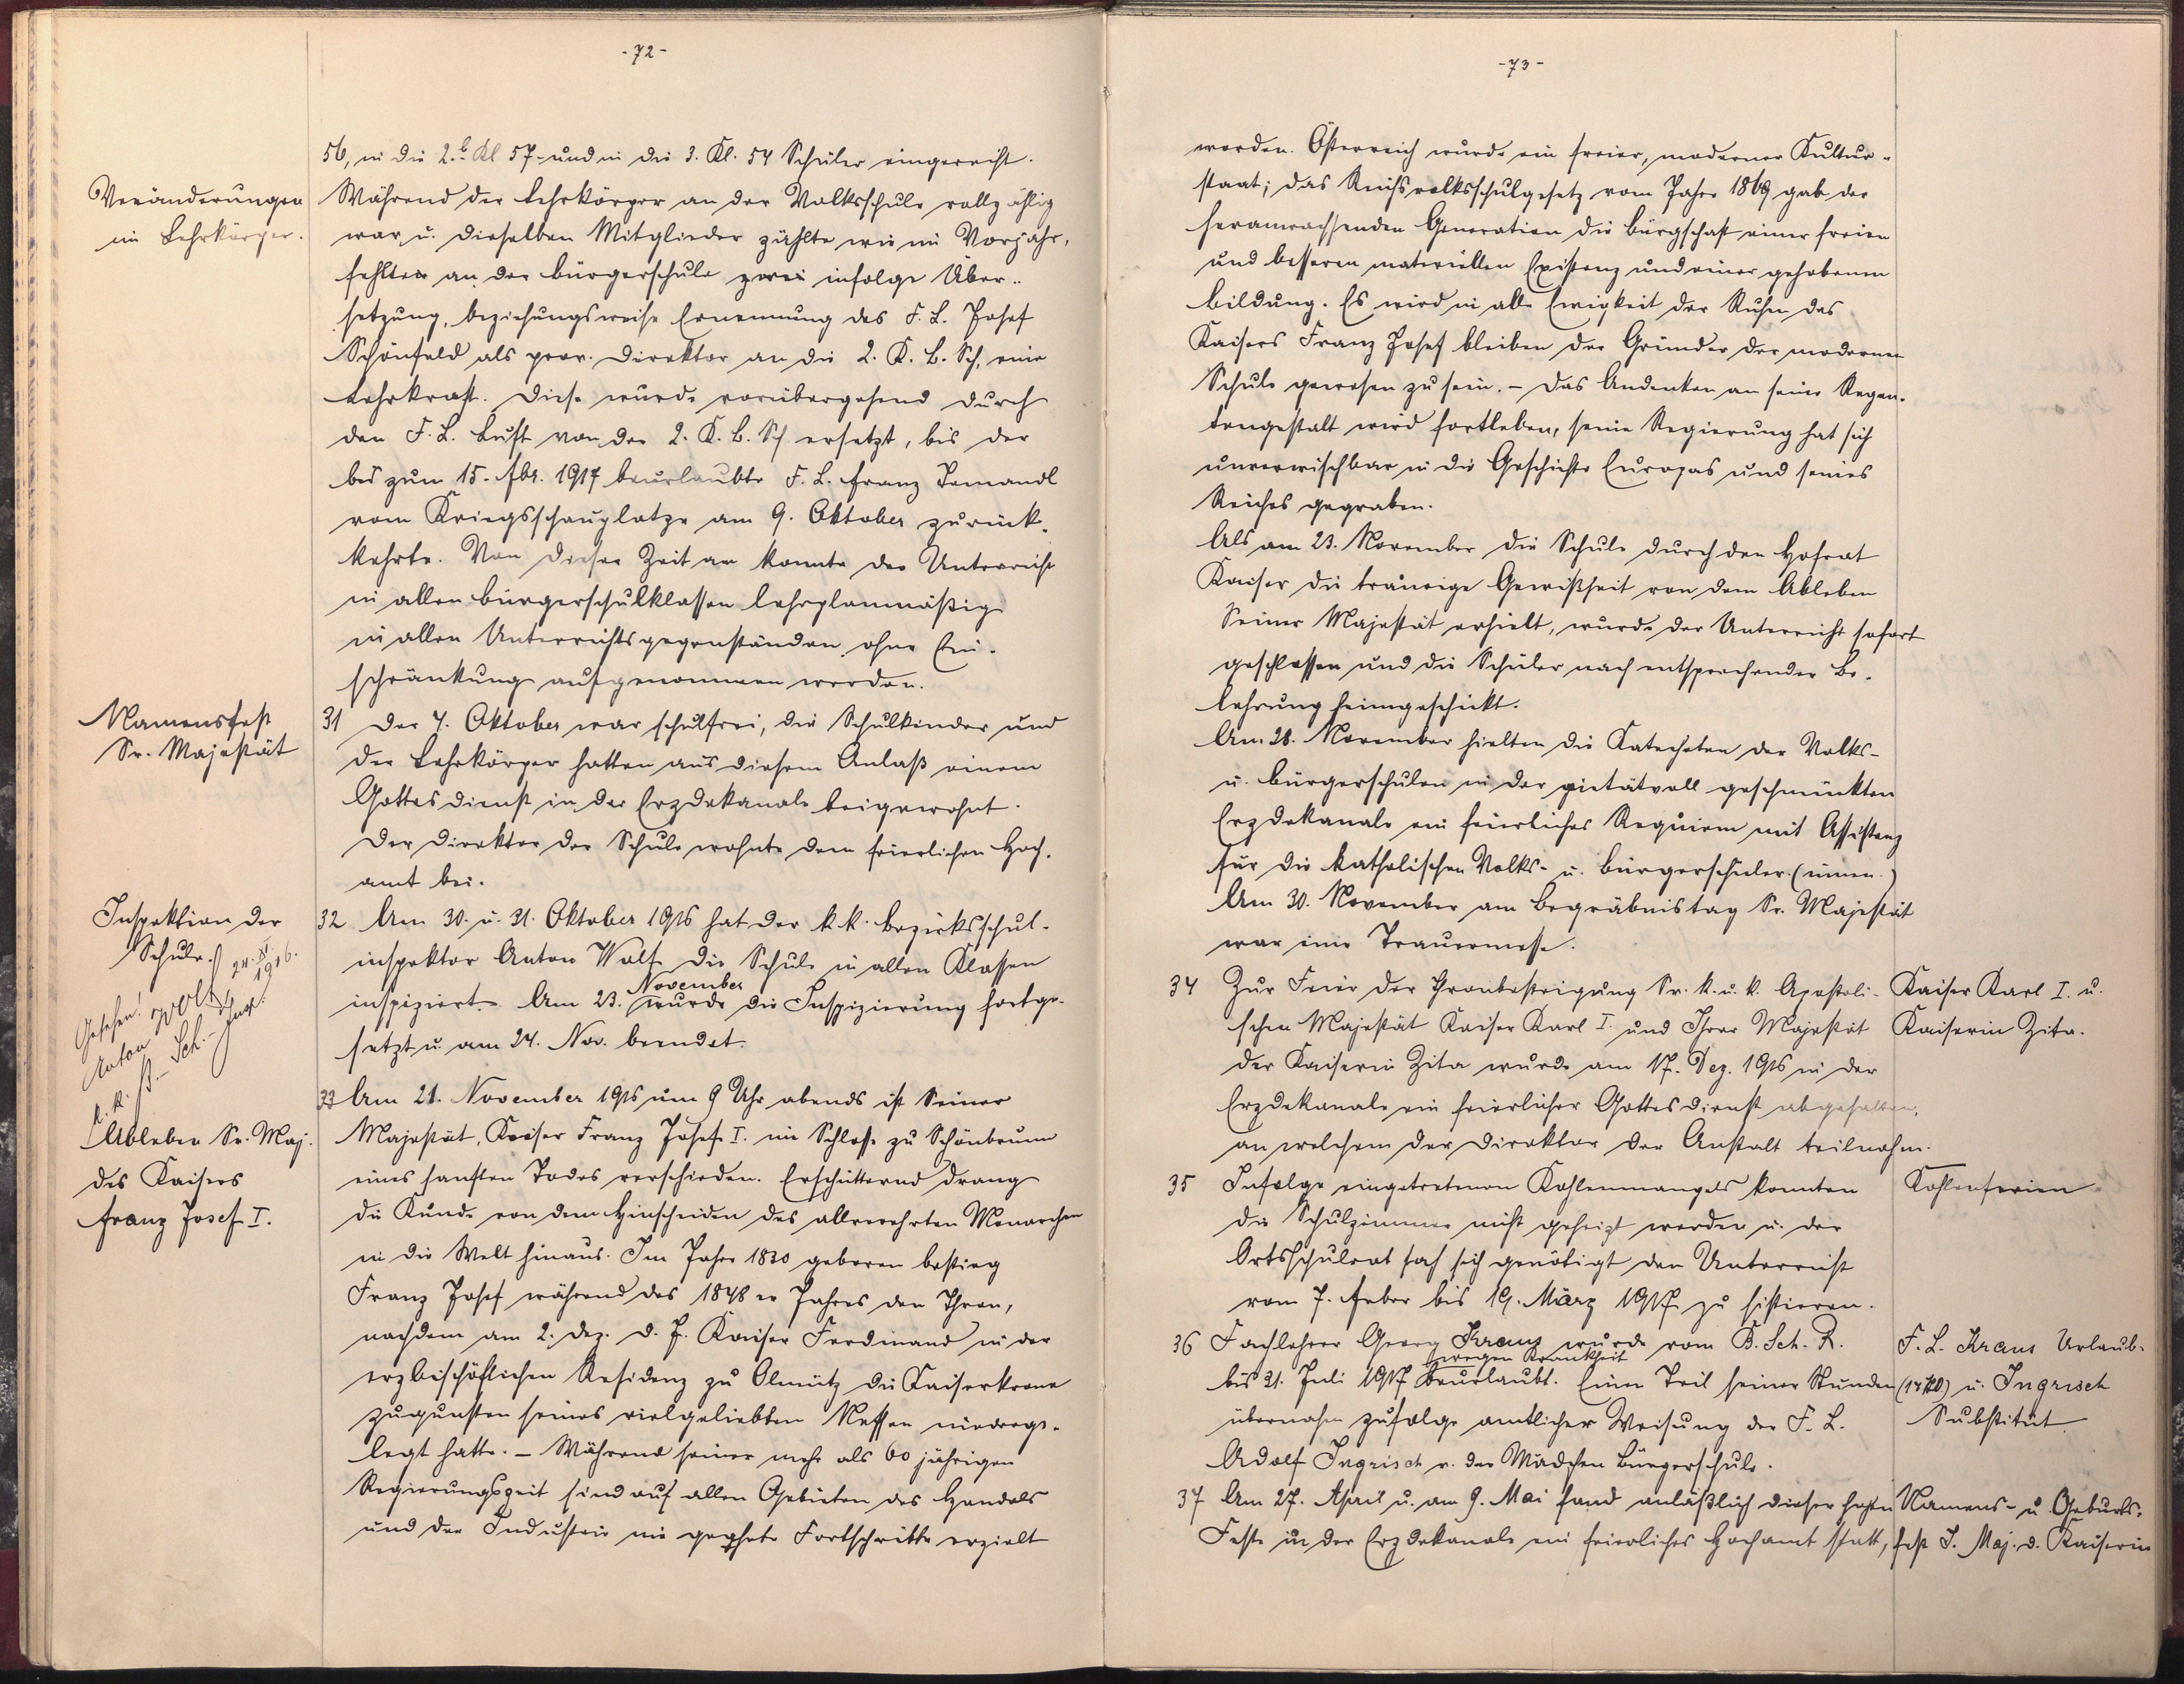 -72-
56, in die 2.b Kl 57 und in die 3. Kl. 54 Schüler eingereiht.
Veränderungen
im Lehrkörper.
Während der Lehrkörper an der Volksschule vollzählig
war u. dieselben Mitglieder zählte wie im Vorjahr,
fehlten an der Bürgerschule zwei infolge Über-
setzung, beziehungsweise Ernennung des F. L. Josef
Schönfeld als prov. Direktor an die 2. K. B. Sch. eine
Lehrkraft. Diese wurde vorübergehend durch
den F. L. Luft von der 2. K. B. Sch ersetzt, bis der
bis zum 15. 1917 beurlaubte F. L. Franz Pomandl
vom Kriegsschauplatze am 9. Oktober zurück-
kehrte. Von dieser Zeit an konnte der Unterricht
in allen Bürgerschulklassen lehrplanmäßig
in allen Unterrichtsgegenständen ohne Ein-
schränkung aufgenommen werden.
Namensfest
Sr. Majestät
31 Der 4. Oktober war schulfrei, die Schulkinder und
der Lehrkörper hatten aus diesem Anlaß einem
Gottesdienst in der Erzdekanale beigewohnt.
Der Direktor der Schule wohnte dem feierlichen Hoch-
amt bei.
Inspektion der
Schule.
32 Am 30. u. 31. Oktober 1916 hat der k.k. Bezirksschul-
inspektor Anton Wolf die Schule in allen Klassen
November
inspiziert. Am 23. wurde die Inspizierung fortge-
setzt u. am 24. Nov. beendet.
Gesehen! 24. XI. 1916.
Anton Wolf
k. k. B.- Sch.- Insp.
Ableben Sr. Maj.
des Kaisers
Franz Josef I.
33 Am 21. November 1916 um 9 Uhr abends ist Seiner
Majestät, Kaiser Franz Josef I. im Schlosse zu Schönbrunn
eines sanften Todes verschieden. Erschütternd drang
die Kunde von dem Hinscheiden des allverehrten Monarchen
in die Welt hinaus. Im Jahre 1830 geboren bestieg
Franz Josef während des 1848 er Jahres den Thron,
nachdem am 2. Dez. d. J. Kaiser Ferdinand in der
erzbischöflichen Residenz zu Olmütz die Kaiserkrone
zugunsten seines vielgeliebten Neffen niederge-
legt hatte. – Während seiner mehr als 60 jährigen
Regierungszeit sind auf allen Gebieten des Handels
und der Industrie nie geahnte Fortschritte erzielt
-73-
worden. Österreich wurde ein freier, moderner Kultur-
staat; das Reichsvolksschulgesetz vom Jahre 1869 gab der
heranwachsenden Generation die Bürgschaft einer freien
und besseren materiellen Existenz und einer gehobenen
Bildung. Es wird in alle Ewigkeit der Ruhm des
Kaisers Franz Josef bleiben der Gründer der modernen
Schule gewesen zu sein. – Das Andenken an seine Regen-
tengestalt wird fortleben, seine Regierung hat sich
unverwischbar in die Geschichte Europas und seines
Reiches gegraben.
Als am 23. November die Schule durch den Hofrat
Kaiser die traurige Gewißheit von dem Ableben
Seiner Majestät erhielt, wurde der Unterricht sofort
geschlossen und die Schüler nach entsprechender Be-
lehrung heimgeschickt.
Am 28. November hielten die Katecheten der Volks-
u. Bürgerschulen in der pietätvoll geschmückten
Erzdekanale ein feierliches Requiem mit Assistenz
für die katholischen Volks- u. Bürgerschüler (innen.)
Am 30. November am Begräbnistag Sr. Majestät
war eine Trauermesse.
34 Zur Feier der Thronbesteigung Sr. k. u. k. Apostoli-
schen Majestät Kaiser Karl I. und Ihrer Majestät
der Kaiserin Zita wurde am 17. Dez. 1916 in der
Erzdekanale ein feierlicher Gottesdienst abgehalten,
an welchem der Direktor der Anstalt teilnahm.
Kaiser Karl I. u.
Kaiserin Zita.
35 Infolge eingetretenen Kohlenmangels konnten
die Schulzimmer nicht geheizt werden u. der
Ortsschulrat sah sich genötigt den Unterricht
vom 7. Feber bis 19. März 1917 zu sistieren.
Kohlenferien
36 Fachlehrer Georg Kraus wurde vom B. Sch. R.
wegen Krankheit
bis 31. Juli 1917 beurlaubt. Einen Teil seiner Stunden
übernahm zufolge amtlicher Weisung der F. L.
Adolf Ingrisch v. der Mädchen Bürgerschule.
F. L. Kraus Urlaub.
u. Ingrisch
Substitut.
37 Am 27. April u. am 9. Mai fand anläßlich dieser hohen
Feste in der Erzdekanale ein feierliches Hochamt statt,
Namens- u. Geburts-
fest I. Maj. d. Kaiserin